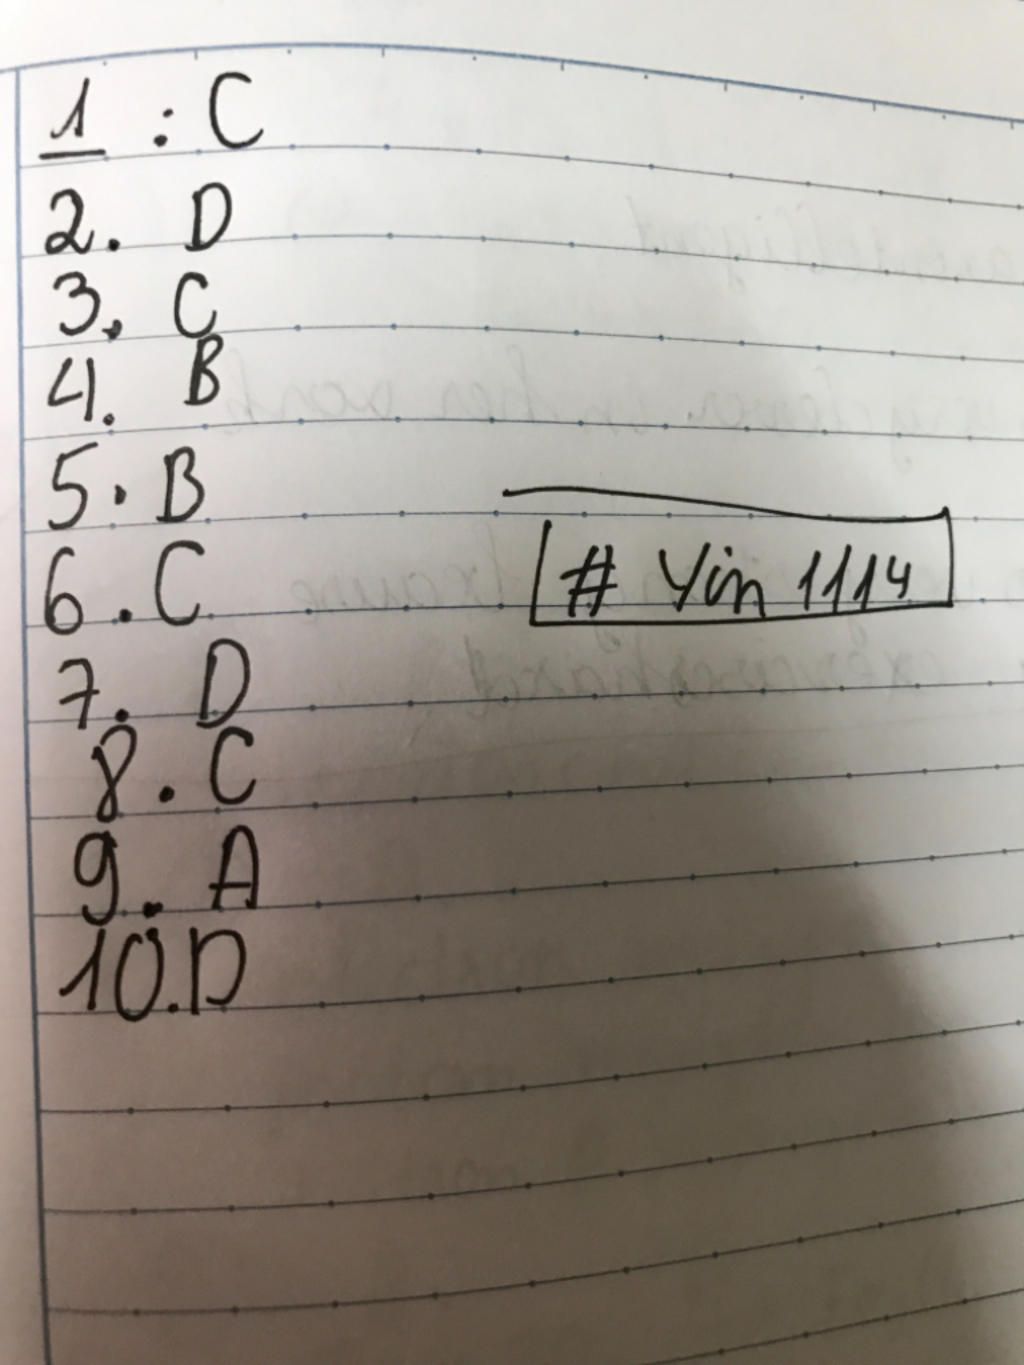 1 : C
2. D
3. C
4. B
5. B
6. C
# Yin 1114
7. D
8. C
9. A
10. D